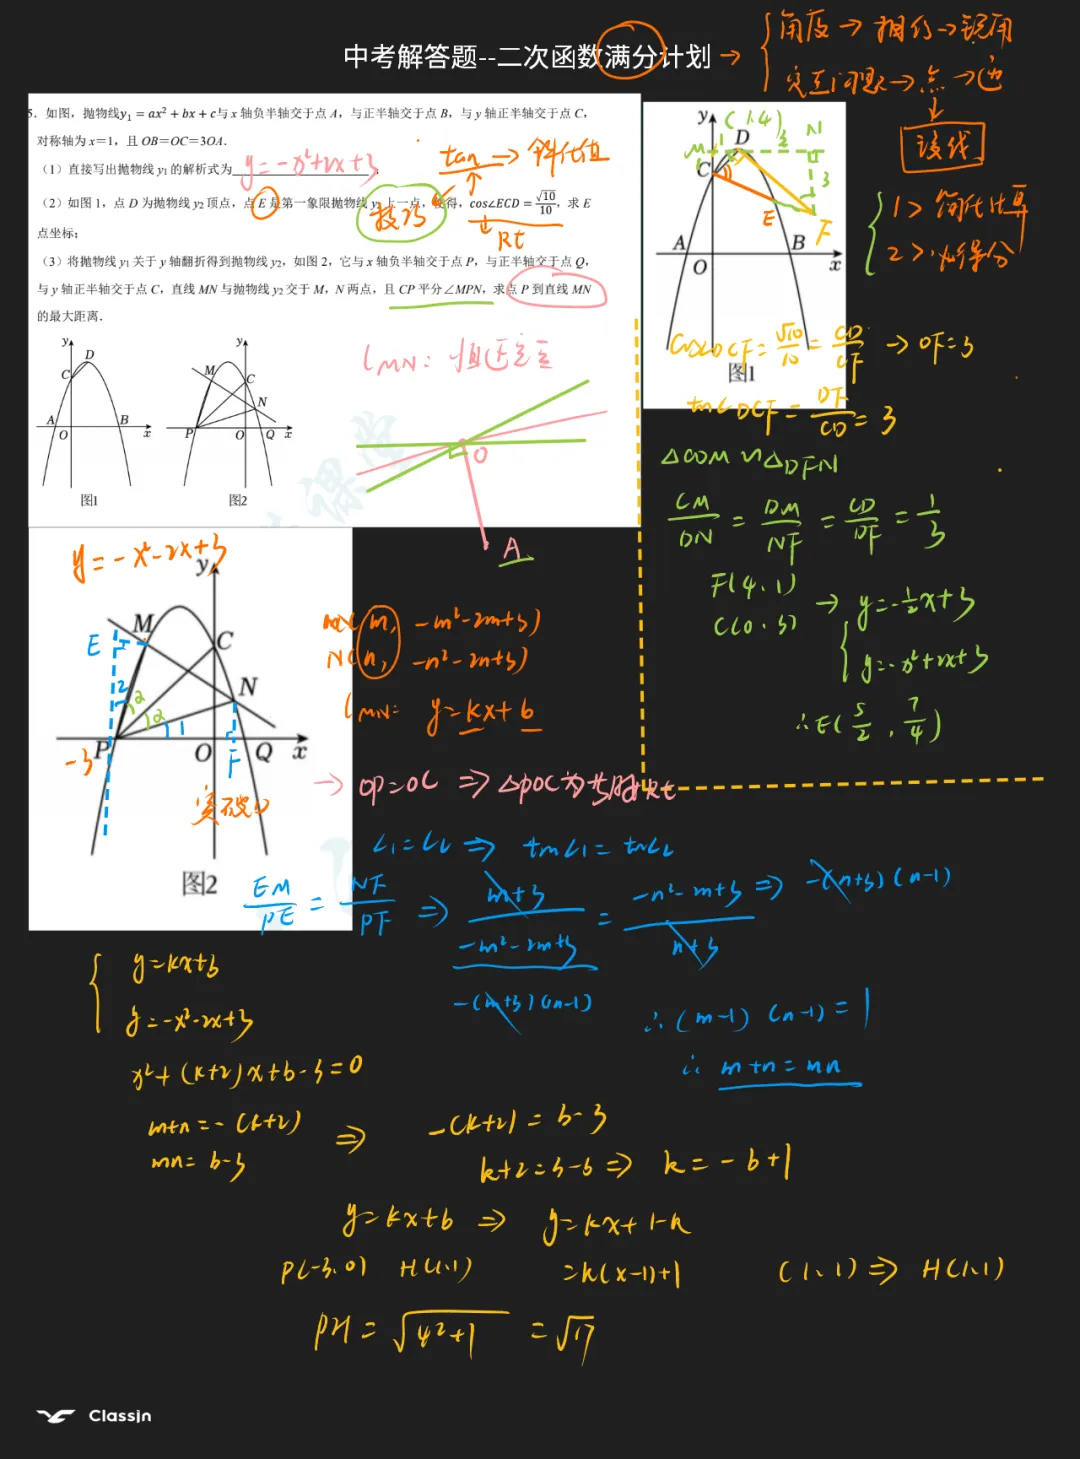 中考解答题--二次函数满分计划 →
角度 → 相似 → 锐角
交互问题 → 点 → 边
↓
读线
1> 简化计算
2> 必得分
5. 如图，抛物线y₁ = ax² + bx + c与 x 轴负半轴交于点 A，与正半轴交于点 B，与 y 轴正半轴交于点 C，
对称轴为 x＝1，且 OB＝OC＝3OA．
（1）直接写出抛物线 y₁ 的解析式为 y = -x²+2x+3；
tan → 斜化值
（2）如图 1，点 D 为抛物线 y₂ 顶点，点 E 是第一象限抛物线 y₂ 上一点，使得，cos∠ECD = √10/10，求 E
点坐标；
技巧
Rt
（3）将抛物线 y₁ 关于 y 轴翻折得到抛物线 y₂，如图 2，它与 x 轴负半轴交于点 P，与正半轴交于点 Q，
与 y 轴正半轴交于点 C，直线 MN 与抛物线 y₂ 交于 M，N 两点，且 CP 平分∠MPN，求点 P 到直线 MN
的最大距离．
l MN: 恒过定点
O
A
y
D
C
A
O
B
x
图1
y
M
C
N
P
O
Q
x
图2
y
(1,4)
M
1
D
2
N
C
3
E
F
A
O
B
x
图1
cos∠DCF = √10/10 = CD/CF → DF=3
tan∠DCF = DF/CD = 3
△CDM ∽ △DFN
CM/DN = DM/NF = CD/DF = 1/3
F(4,1)
C(0,3)
→ y = -½x+3
y = -x²+2x+3
∴E(5/2, 7/4)
y = -x²-2x+3
y
E
M
C
N
2
2
2
1
-3
P
O
F
Q
x
突破口
图2
M(m, -m²-2m+3)
N(n, -n²-2n+3)
l MN: y = kx+b
→ OP=OC ⇒ △POC为等腰Rt
∠1=∠2 ⇒ tan∠1 = tan∠2
EM/PE = NF/PF ⇒ (m+3)/(-m²-2m+3) = (-n²-m+3)/(n+3) ⇒ -(n+3)(n-1)
-(m+3)(m-1)
∴(m-1)(n-1)=1
∴ m+n=mn
y=kx+b
y=-x²-2x+3
x²+(k+2)x+b-3=0
m+n=-(k+2)
mn=b-3
⇒ -(k+2)=b-3
k+2=3-b ⇒ k=-b+1
y=kx+b ⇒ y=kx+1-k
P(-3,0) H(1,1) =k(x-1)+1 (1,1) ⇒ H(1,1)
PH = √4²+1 = √17
ClassIn